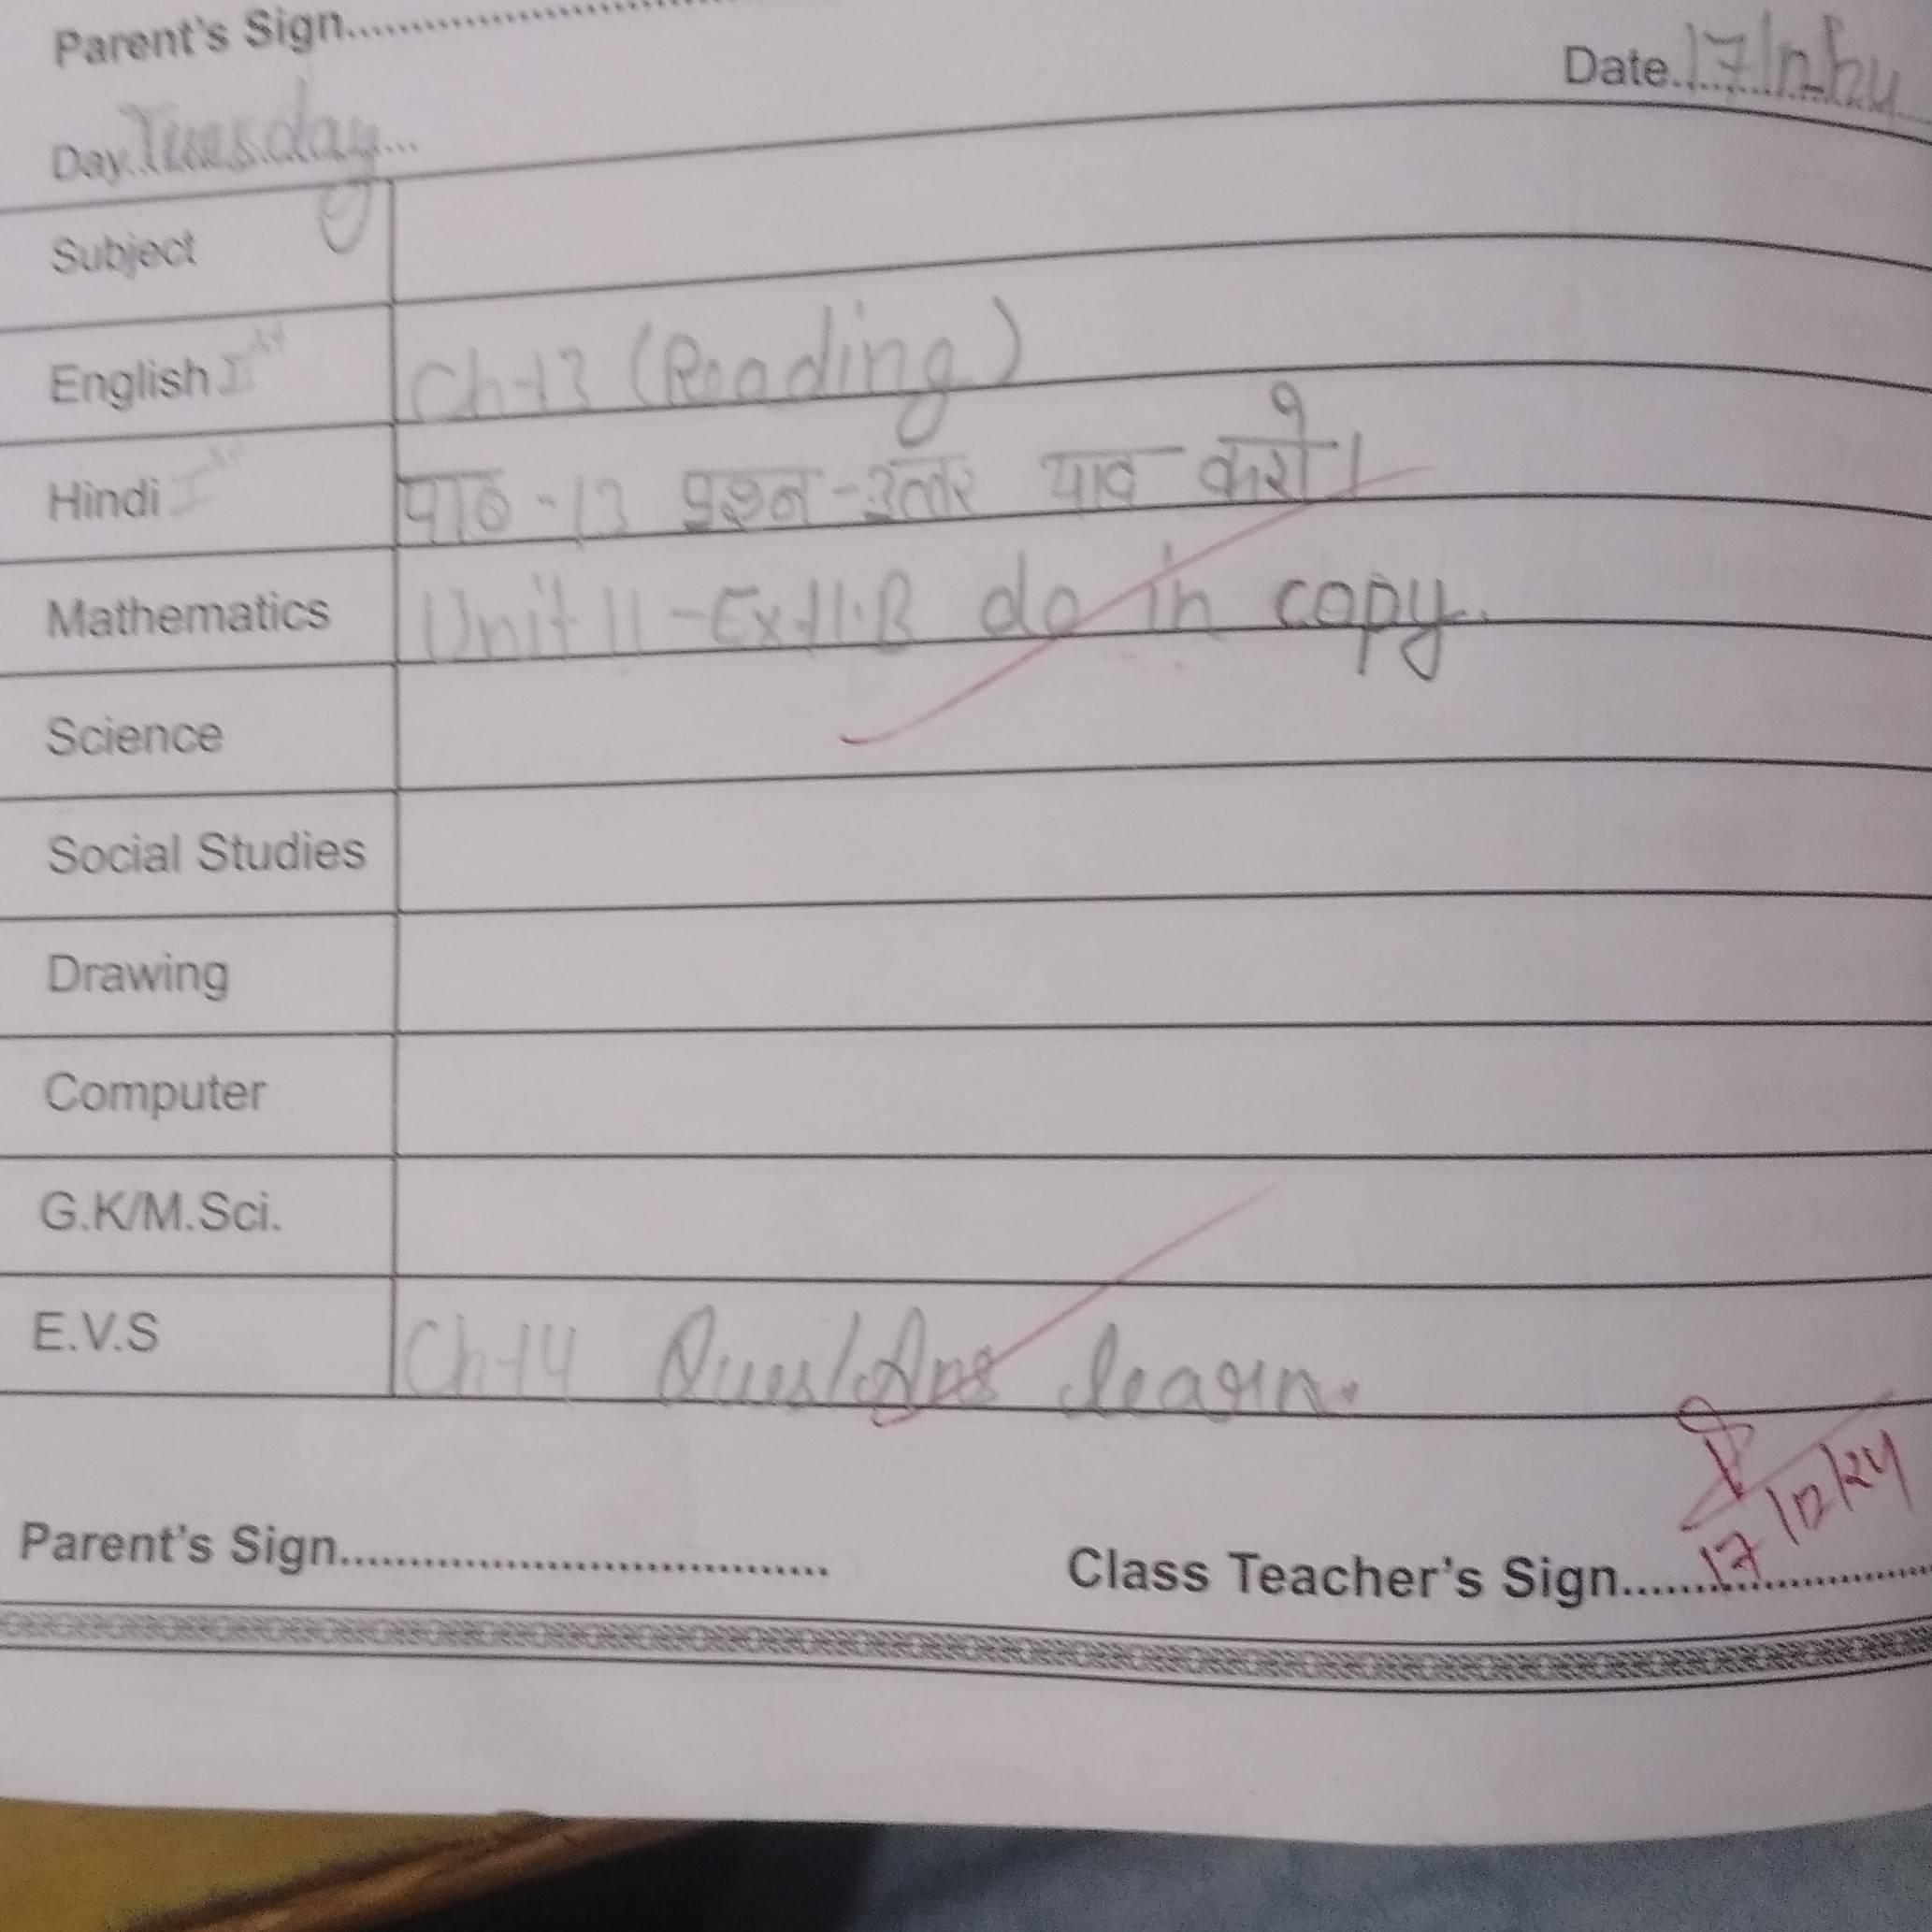 Parent's Sign....................
Date..17/12/24
Day..Tuesday...
Subject
English Ist Ch-13 (Reading)
Hindi Ist पाठ-13 प्रश्न-उत्तर याद करो।
Mathematics Unit 11-Ex-11.B do in copy.
Science
Social Studies
Drawing
Computer
G.K/M.Sci.
E.V.S Ch-14 Ques/Ans learn.
17/12/24
Parent's Sign.................................... Class Teacher's Sign....................